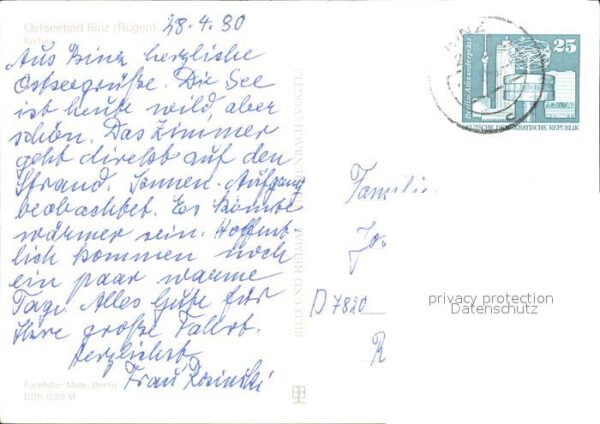 Ostseebad Binz (Rügen)
28.4.80
Aus Binz herzliche
Ostseegrüße. Die See
ist heute wild, aber
schön. Das Zimmer
geht direkt auf den
Strand. Sonnen-Aufgang
beobachtet. Es könnte
wärmer sein. Hoffent-
lich kommen noch
ein paar warme
Tage. Alles Gute für
Ihre große Fahrt.
Herzlichst,
Frau Rosinski
Farbfoto: Mohr, Berlin
DDR 0,20 M
BILD UND HEIMAT REICHENBACH (VOGTL)
BINZ
25
Berlin-Alexanderplatz
DEUTSCHE DEMOKRATISCHE REPUBLIK
Familie
D 7820
privacy protection
Datenschutz
R